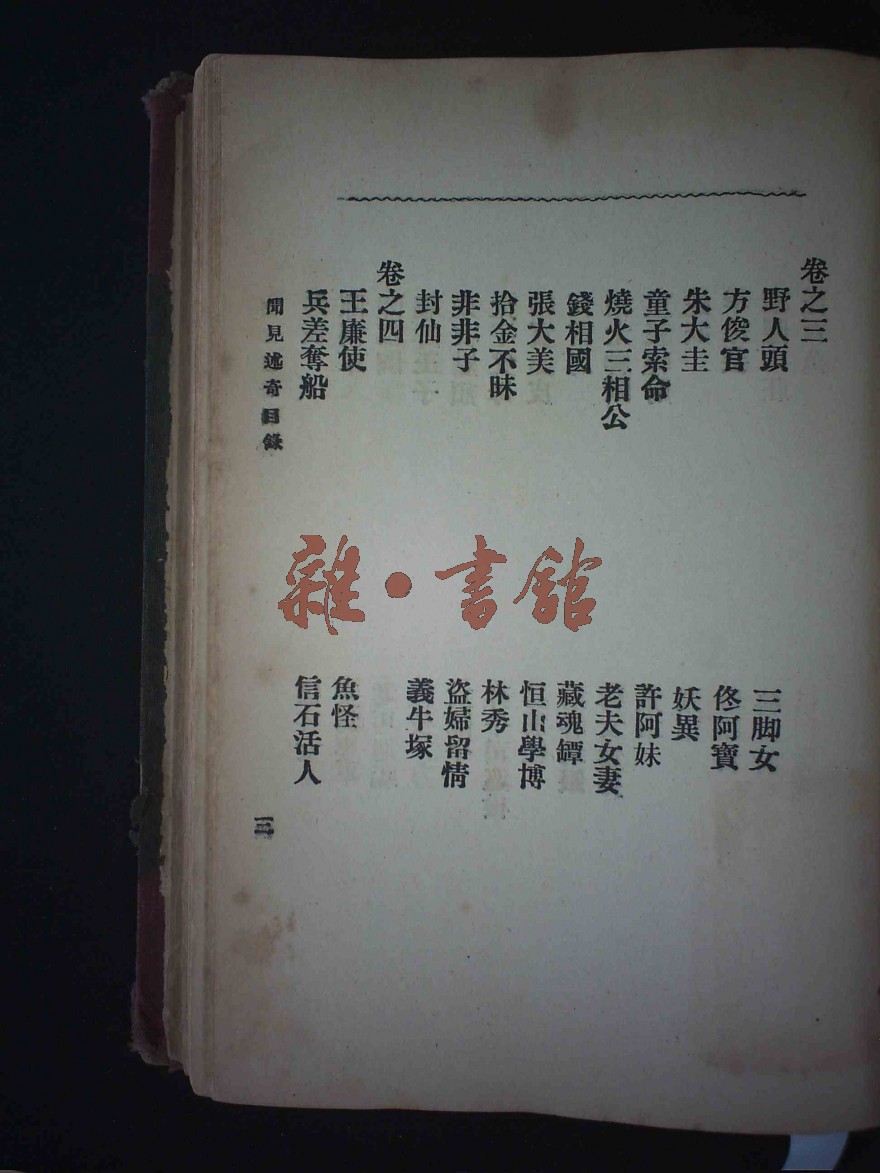 卷之三
野人頭
三脚女
方俊官
佟阿寶
朱大圭
妖異
童子索命
許阿妹
燒火三相公
老夫女妻
錢相國
藏魂罈
張大美
恒山學博
拾金不昧
林秀
非非子
盜婦留情
封仙
義牛塚
卷之四
王廉使
魚怪
兵差奪船
信石活人
聞見述奇目錄
三
雜·書館